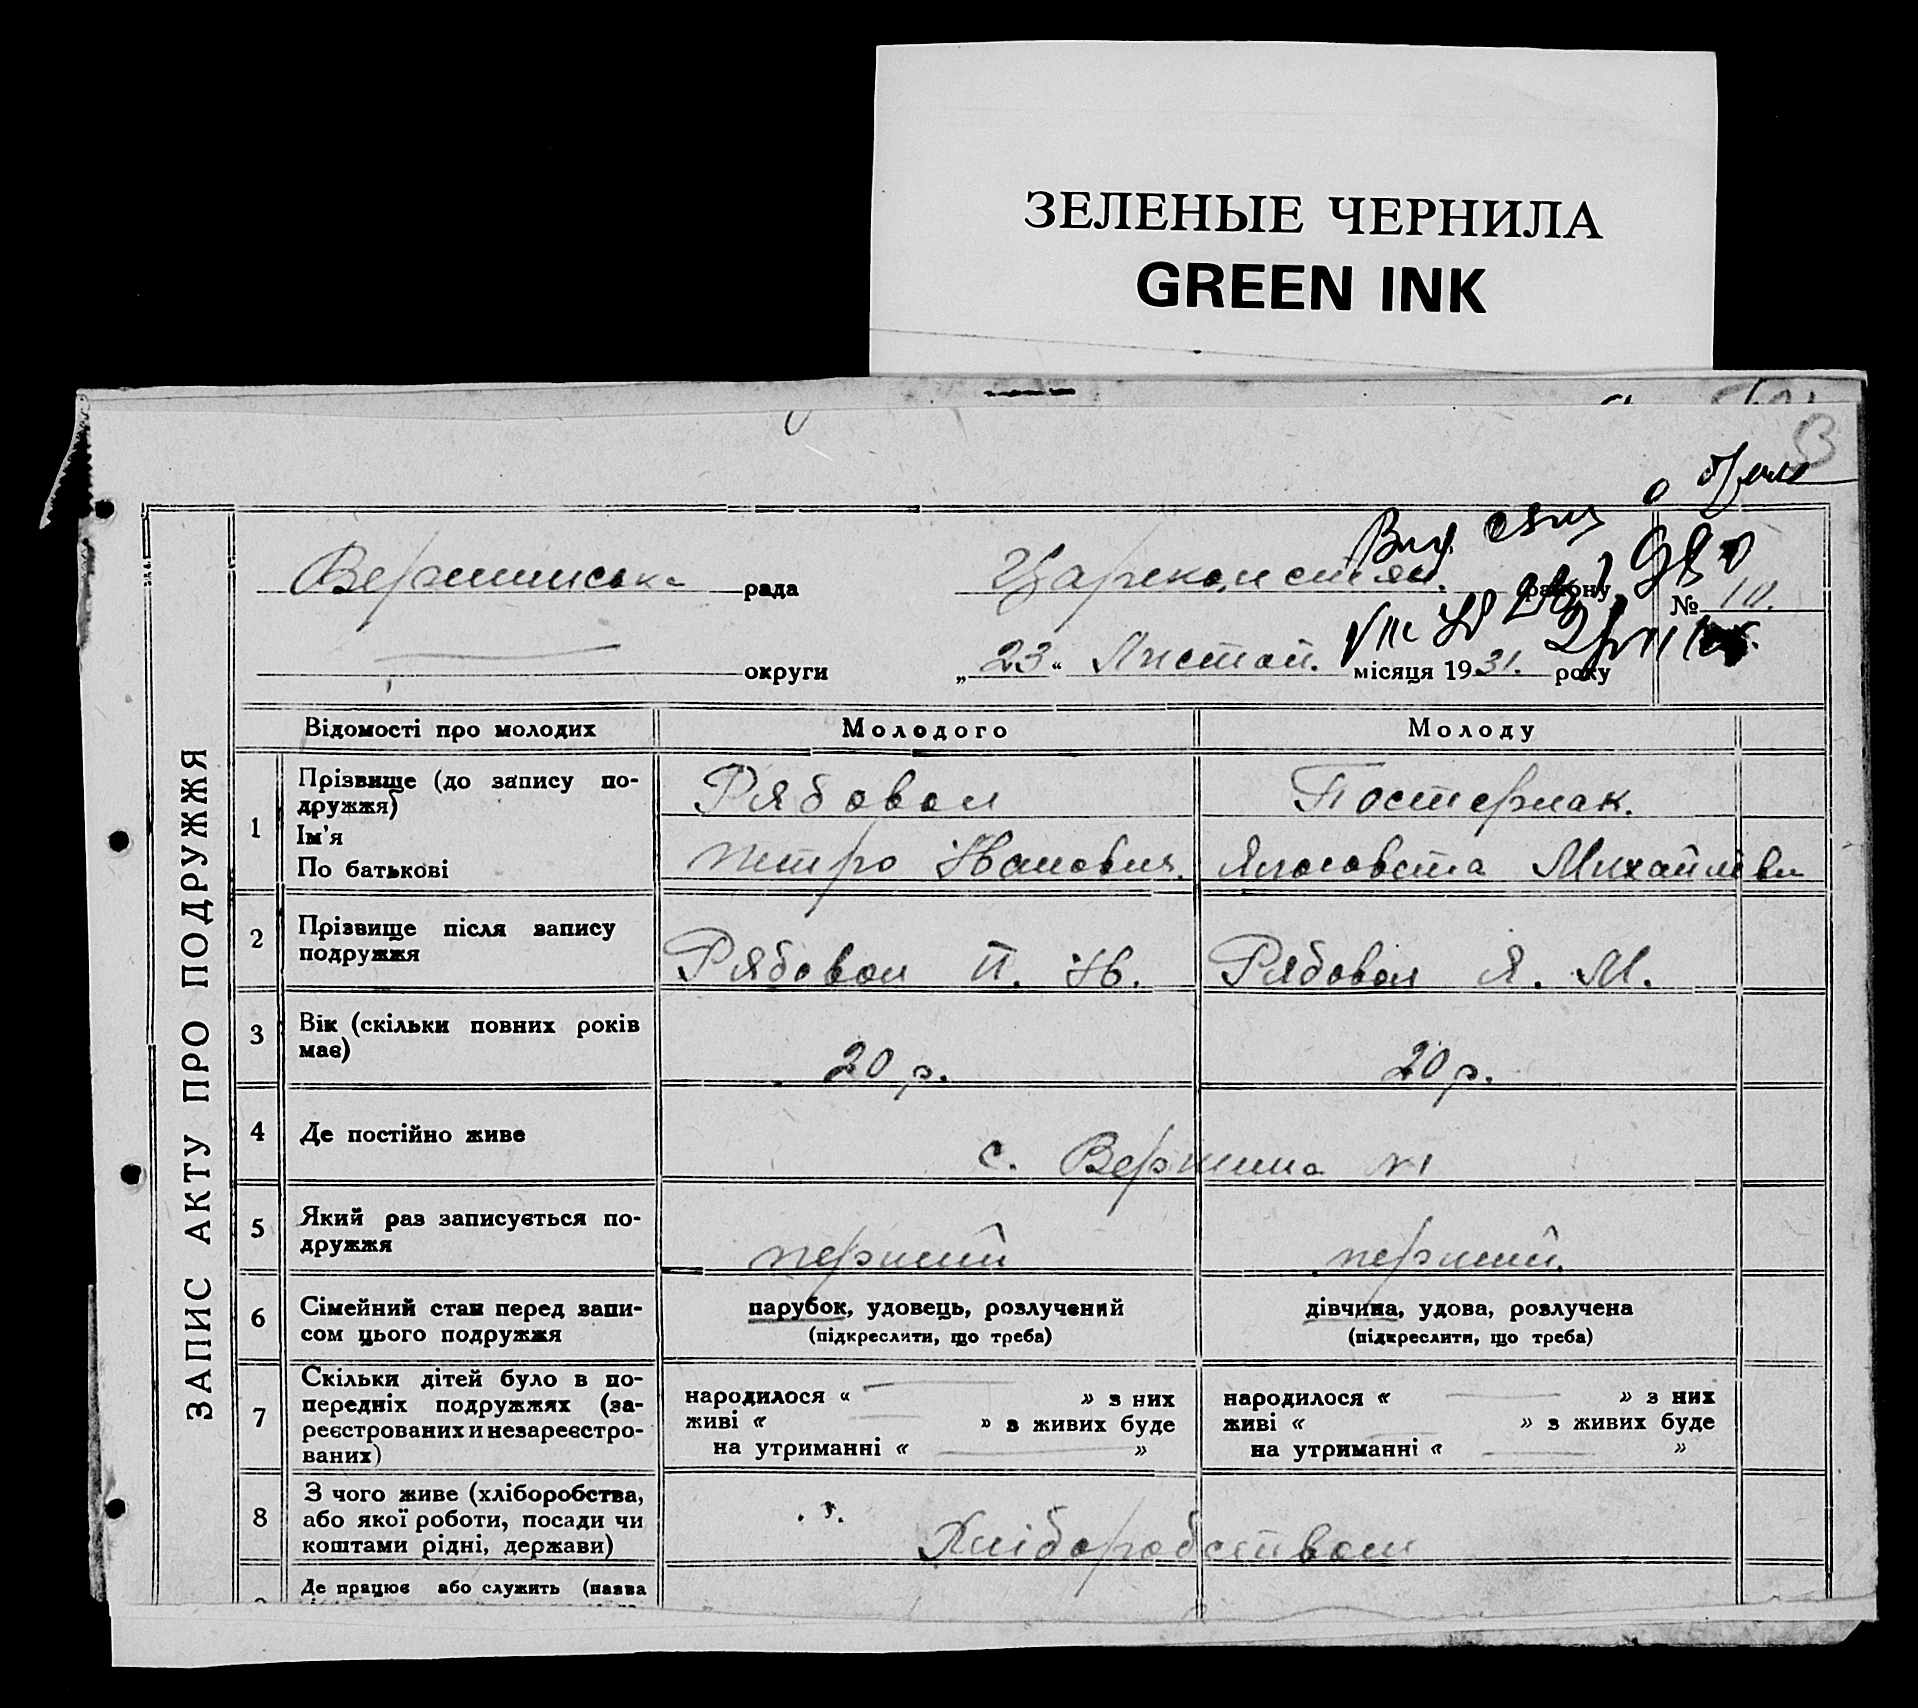 ЗЕЛЕНЫЕ ЧЕРНИЛА
GREEN INK
3
Вершинська рада Цареконстян. району № 10.
округи „23“ Листоп. місяця 1931. року
ЗАПИС АКТУ ПРО ПОДРУЖЖЯ
Відомості про молодих Молодого Молоду
1 Прізвище (до запису по-
дружжя)
Рябовол Постернак.
Ім'я
По батькові
Петро Иванович. Ялосовета Михайлівн
2 Прізвище після запису
подружжя
Рябовол П. И. Рябовол Я. М.
3 Вік (скільки повних років
має)
20 р. 20 р.
4 Де постійно живе с. Вершина №1
5 Який раз записується по-
дружжя
перший перший.
6 Сімейний стан перед запи-
сом цього подружжя
парубок, удовець, розлучений
(підкреслити, що треба)
дівчина, удова, розлучена
(підкреслити, що треба)
7 Скільки дітей було в по-
передніх подружжях (за-
реєстрованих и незареєстро-
ваних)
народилося « » з них
живі « » з живих буде
на утриманні « »
народилося « » з них
живі « » з живих буде
на утриманні « »
8 З чого живе (хліборобства,
або якої роботи, посади чи
коштами рідні, держави)
Хліборобством
Де працює або служить (назва